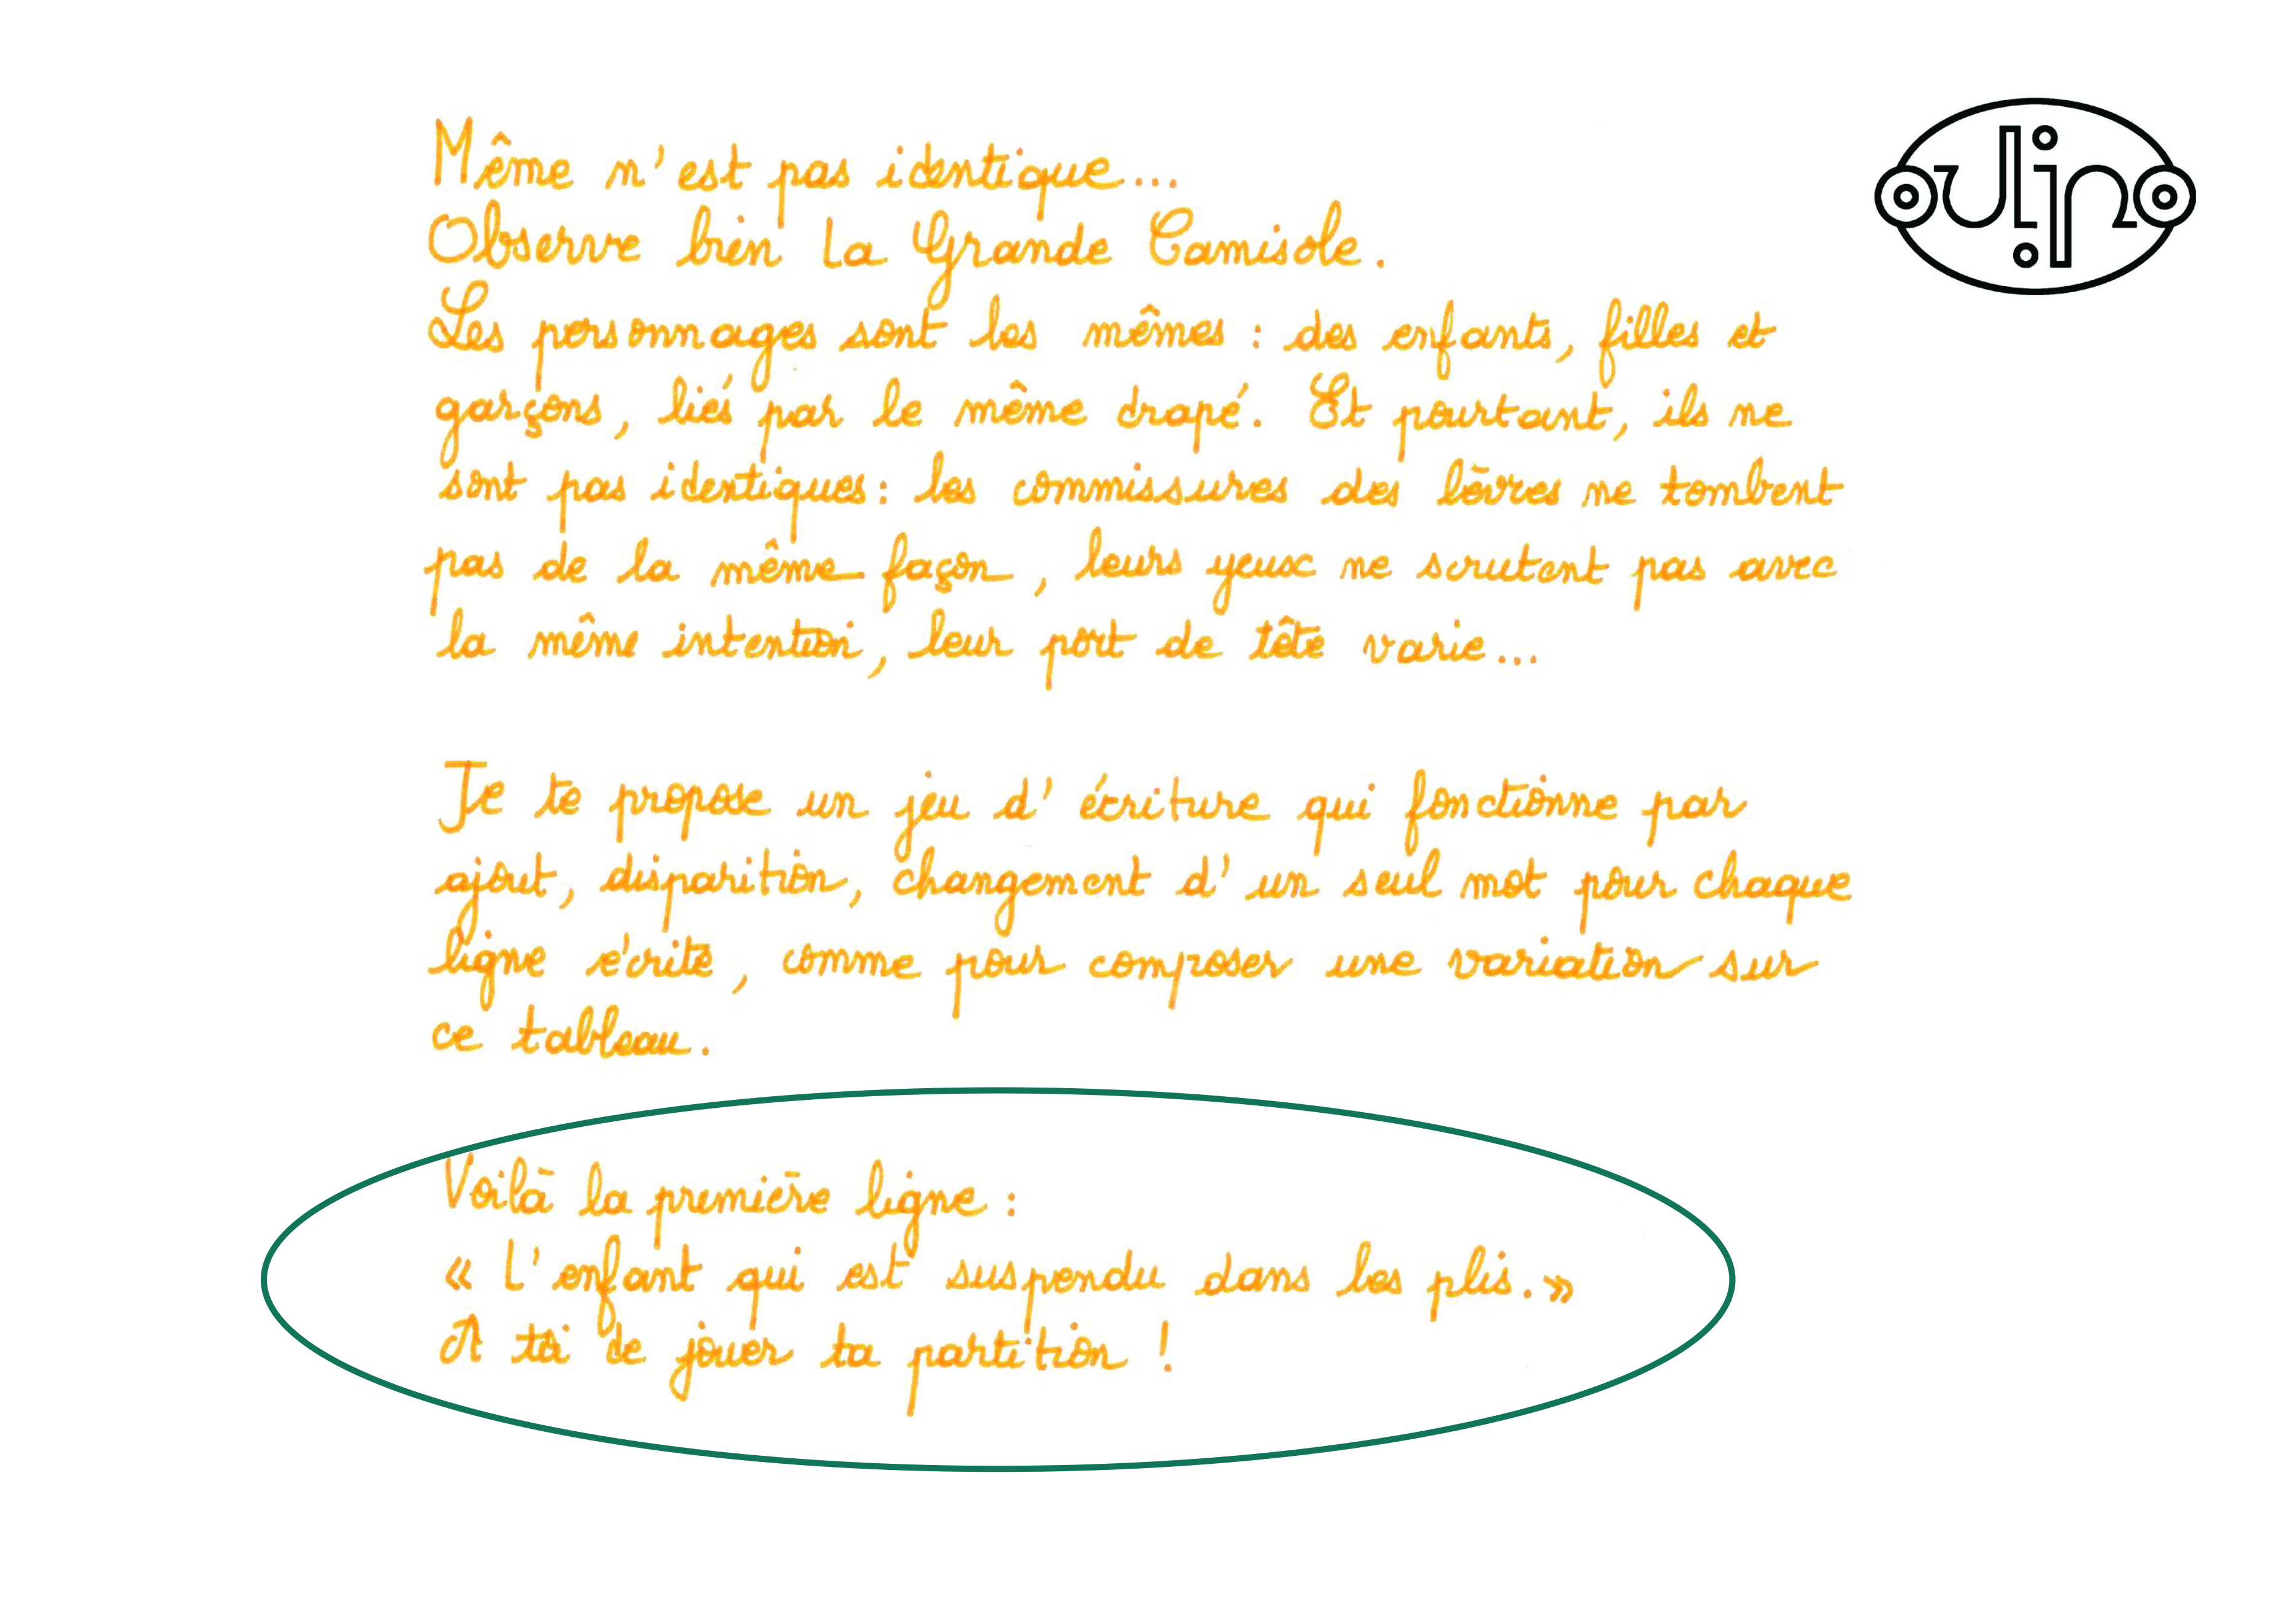 oulipo
Même n'est pas identique...
Observe bien La Grande Camisole.
Les personnages sont les mêmes : des enfants, filles et
garçons, liés par le même drapé. Et pourtant, ils ne
sont pas identiques : les commissures des lèvres ne tombent
pas de la même façon, leurs yeux ne scrutent pas avec
la même intention, leur port de tête varie...
Je te propose un jeu d'écriture qui fonctionne par
ajout, disparition, changement d'un seul mot pour chaque
ligne écrite, comme pour composer une variation sur
ce tableau.
Voilà la première ligne :
« L'enfant qui est suspendu dans les plis. »
A toi de jouer ta partition !